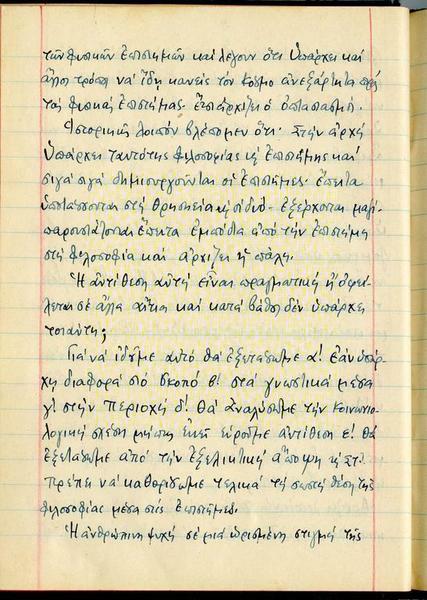 τῶν φυσικῶν ἐπιστημῶν καί λέγουν ὅτι ὑπάρχει καί
ἄλλοι τρόποι νά ἴδῃ κανείς τόν κόσμο ἀνεξάρτητα πρός
τάς φυσικάς ἐπιστήμας. ἔτσι ἀρχίζει ὁ
Ἱστορικῶς λοιπόν βλέπομεν ὅτι. Στήν ἀρχή
ὑπάρχει ταυτότης φιλοσοφίας κ ἐπιστήμης καί
σιγά σιγά δημιουργοῦνται οἱ ἐπιστῆμες. ἔπειτα
ὑποτάσσονται στή θρησκεία κ οἱ δυό. ἐξέρχονται μαζί
παρουσιάζονται ἔπειτα ἐμπόδια ἀπό τήν ἐπιστήμη
στή φιλοσοφία καί ἀρχίζει ἡ πάλη.
Ἡ ἀντίθεση αὐτή εἶναι πραγματική ἤ ὀφεί-
λεται σέ ἄλλα αἴτια καί κατά βάθος δέν ὑπάρχει
τοιαύτη;
Γιά νά ἰδοῦμε αὐτό θά ἐξετάσωμε α! ἐάν ὑπάρ-
χῃ διαφορά στό σκοπό β! στά γνωστικά μέσα
γ! στήν περιοχή δ! θά ἀναλύσωμε τήν κοινωνιο-
λογική σχέση μήπως ἐκεῖ εὑροῦμε ἀντίθεση ε! θά
ἐξετάσωμε ἀπό τήν ἐξελικτική ἄποψη κ ΣΤ!
πρέπει νά καθορίσωμε τελικά τή σωστή θέση τῆς
φιλοσοφίας μέσα στίς ἐπιστῆμες.
Ἡ ἀνθρώπινη ψυχή σέ μιά ὡρισμένη στιγμή τῆς